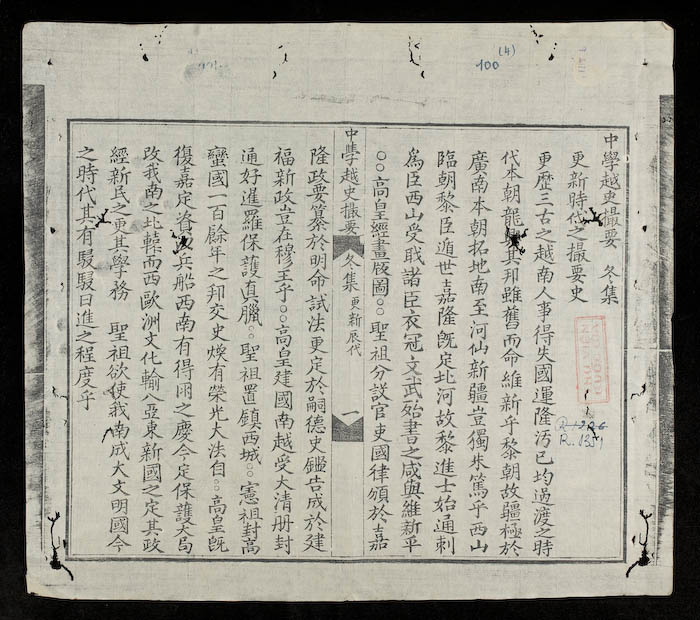 100
(4)
中學越史撮要 冬集
更新時代之撮要史
更歷三古之越南人事得失國運隆污已均過渡之時
代本朝龍其邦雖舊而命維新乎黎朝故疆極於
廣南本朝拓地南至河仙新疆豈獨朱篤乎西山
臨朝黎臣遁世嘉隆旣定北河故黎進士始通刺
爲臣西山受戝諸臣衣冠文武始書之咸與維新乎
○○高皇經畫版圖○○聖祖分設官吏國律頒於嘉
中學越史撮要 冬集 更新辰代 一
隆政要纂於明命試法更定於嗣德史鑑告成於建
福新政豈在穆王乎○○高皇建國南越受大清册封
通好暹羅保護真臘○○聖祖置鎮西城○○憲祖封高
蠻國一百餘年之邦交史煥有榮光大法自○○高皇旣
復嘉定資兵船西南有得朋之慶今定保護大局
改我南之北轅而西歐洲文化輸入亞東新國之定其政
經新民之更其學務 聖祖欲使我南成大文明國今
之時代其有駸駸日進之程度乎